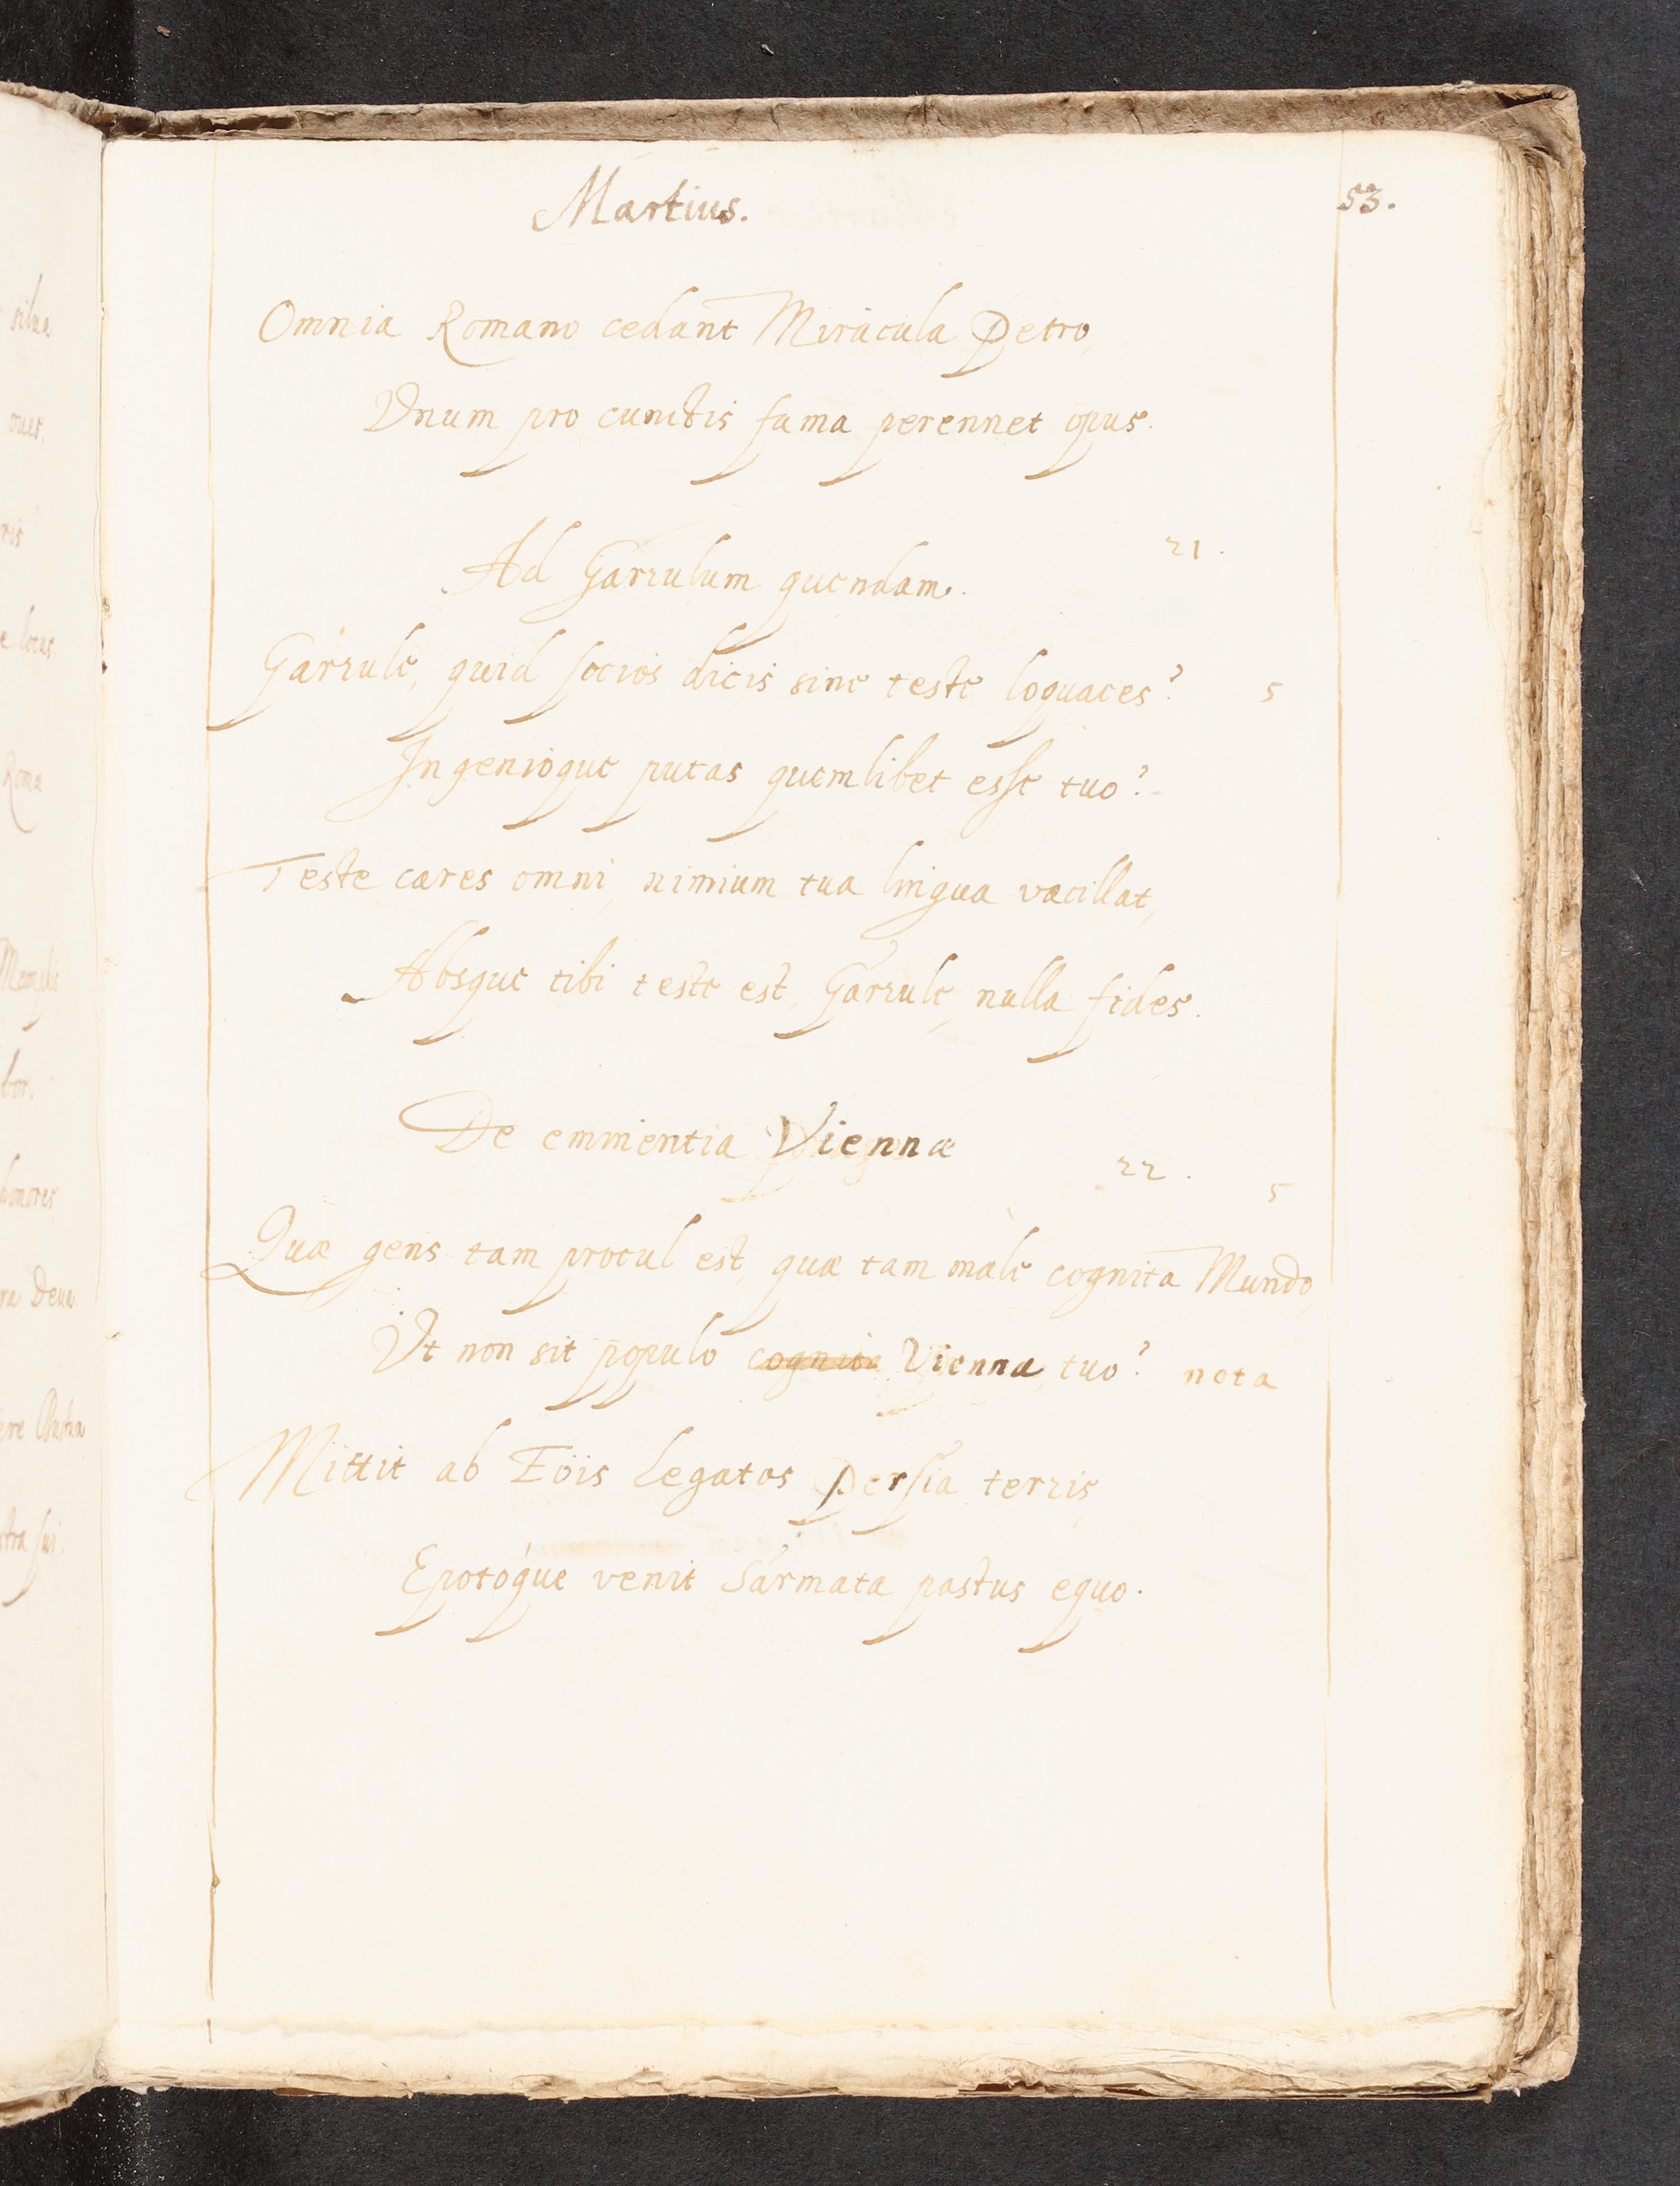 Martius. 53.
Omnia Romano cedant Miràcula Petro,
Vnum pro cunctis fama perennet opus.
21.
Ad Garrulum quendam.
Garrule, quid socios dicis sine teste loquaces? 5
Ingenioque putas quemlibet esse tuo?
Teste cares omni, nimium tua lingua vacillat,
Absque tibi teste est, Garrule, nulla fides.
De eminentia Viennæ
22. 5
Quæ gens tam procul est, quæ tam malè cognita Mundo,
Vt non sit populo cognita Vienna, tuo? nota
Mittit ab Eöis Legatos Persia terris,
Epotóque venit Sarmata pastus equo.
silua
ouer.
ris
e locus
Roma
bor.
honores
ra Deua
stra sui.